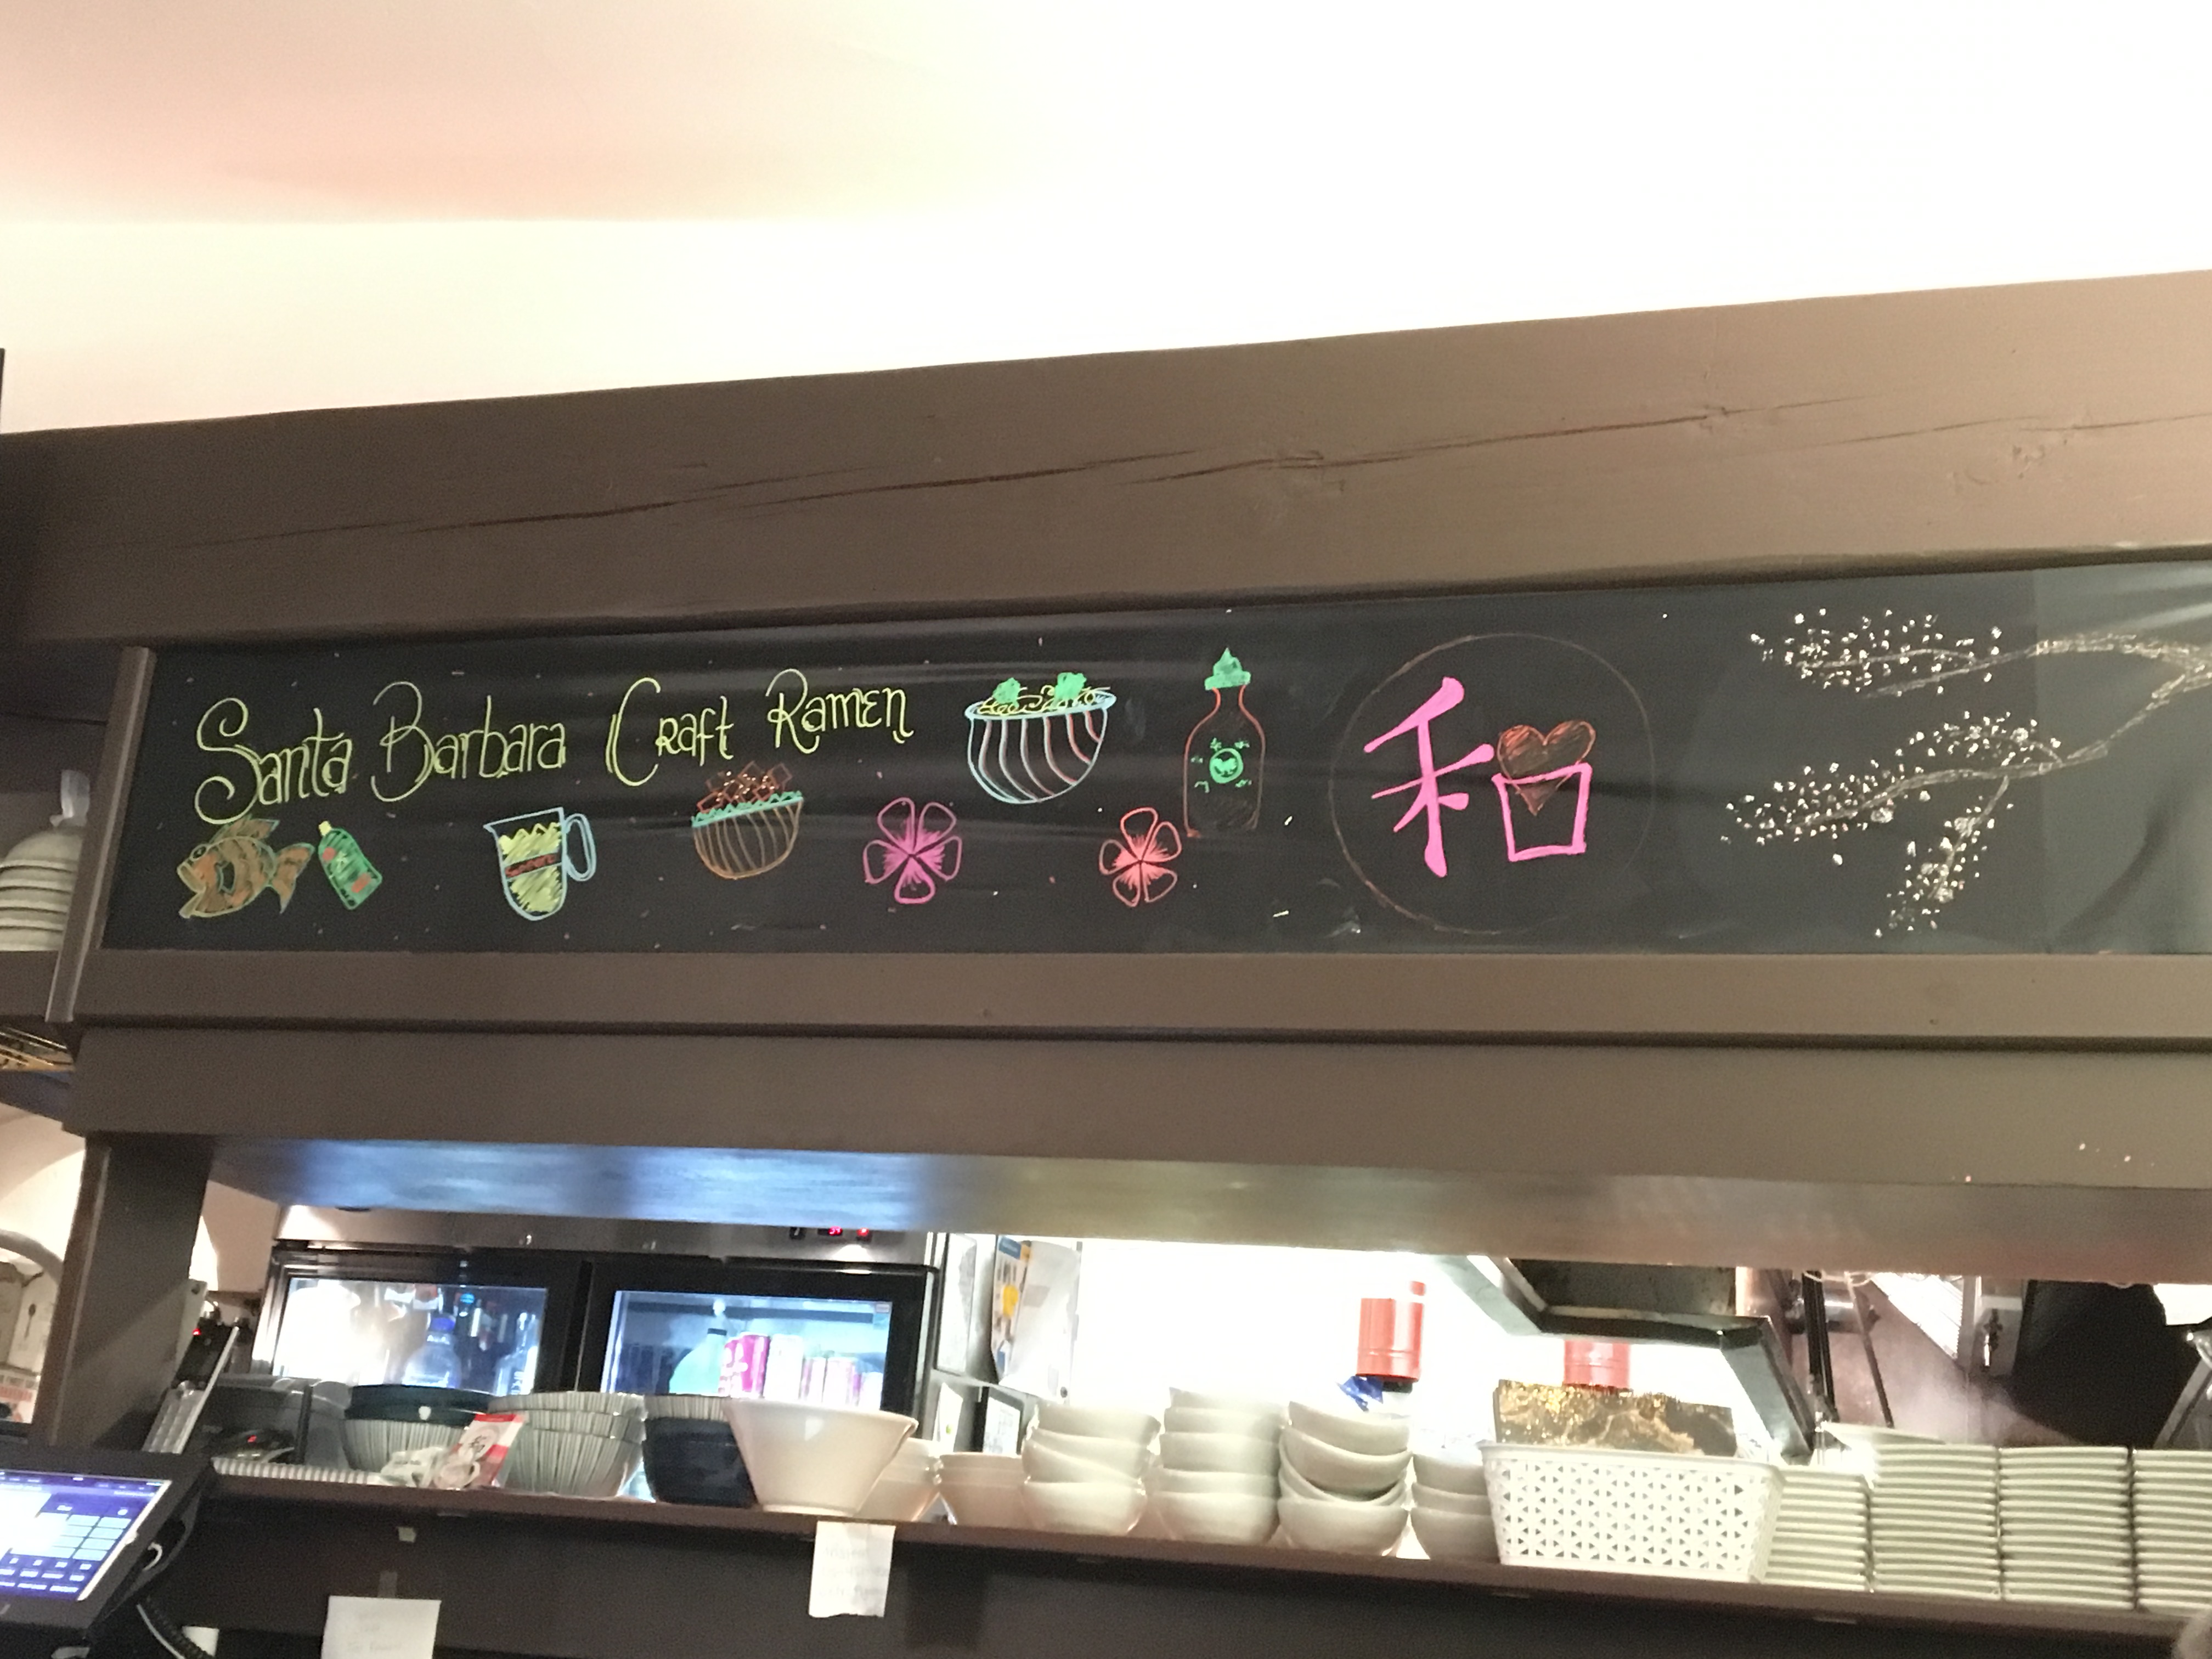 Santa Barbara Craft Ramen
和